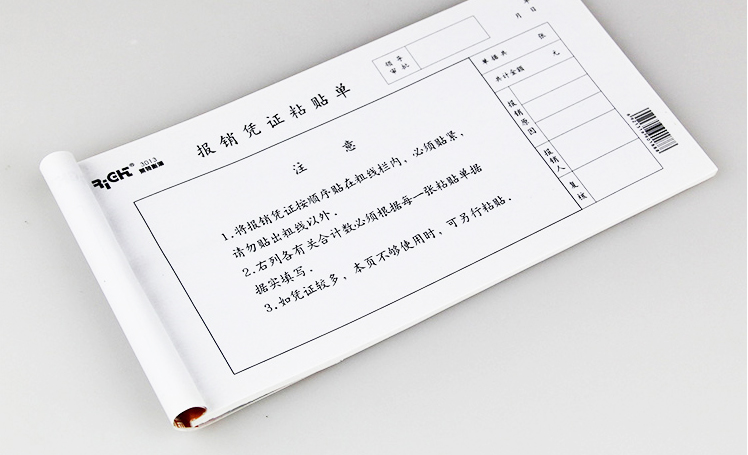 年
月 日
领导
审批
单据共 张
共计金额 元
报销原因
报销人
复核
RiGHT® 3013
报销凭证粘贴单
注 意
1.将报销凭证按顺序贴在粗线栏内，必须贴紧，
请勿贴出粗线以外.
2.右列各有关合计数必须根据每一张粘贴单据
据实填写.
3.如凭证较多，本页不够使用时，可另行粘贴.